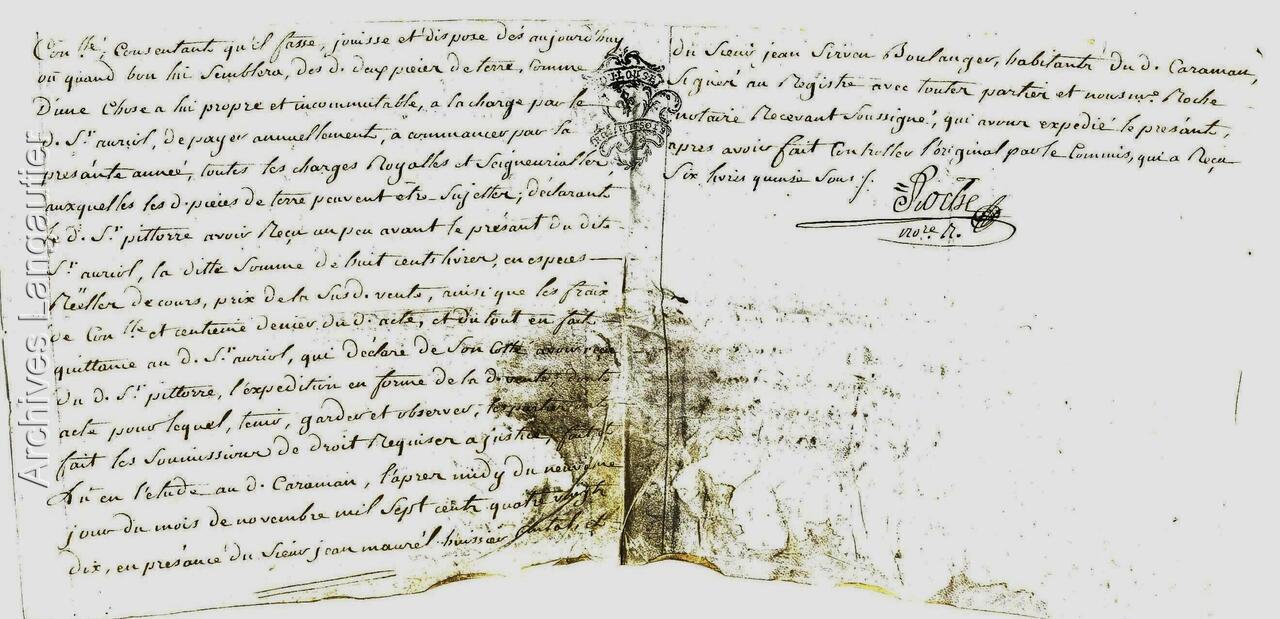 Con.llé, Consentant qu'il fasse, jouisse et dispose dés aujourd'huy
ou quand bon lui Semblera, des d. deux pieces de terre, Comme
D'une Chose a lui propre et incommutable, a la charge par le
d. S.r auriol, de payer annuellement, à commancer par la
présante année, toutes les charges Royalles et Seigneurialles
auxquelles les d. pieces de terre peuvent être Sujettes; déclarant
le d. S.r pittorre avoir Reçu un peu avant le présant du dit
S.r auriol, la ditte Somme de huit cents livres, en especes
Réelles de cours, prix de la Susd. vente, ainsi que les fraix
de Con.lle et centieme denier du d. acte, et du tout en fait
quittance au d. S.r auriol, qui déclare de Son Cotté avoir reçu
du d. S.r pittorre, l'expedition en forme de la d. vente
acte pour lequel, tenir, garder et observer, les parties
fait les Soumissions de droit Requises a justice, fait et
Lu en l'etude au d. Caraman, l'apres midy du neuvieme
jour du mois de novembre mil Sept cents quatre vingt
dix, en présance du Sieur jean maurél huissier et
du Sieur jean Sirven Boulanger, habitants du d. Caraman,
Signés au Registre avec toutes parties et nous m.e Roche
notaire Recevant Soussigné, qui avons expedié le présant,
apres avoir fait Controller l'original par le Commis, qui a Reçu
Six livres quinse Sous /.
Roche
no.re R.
TOULOUSE
Archives Langautier